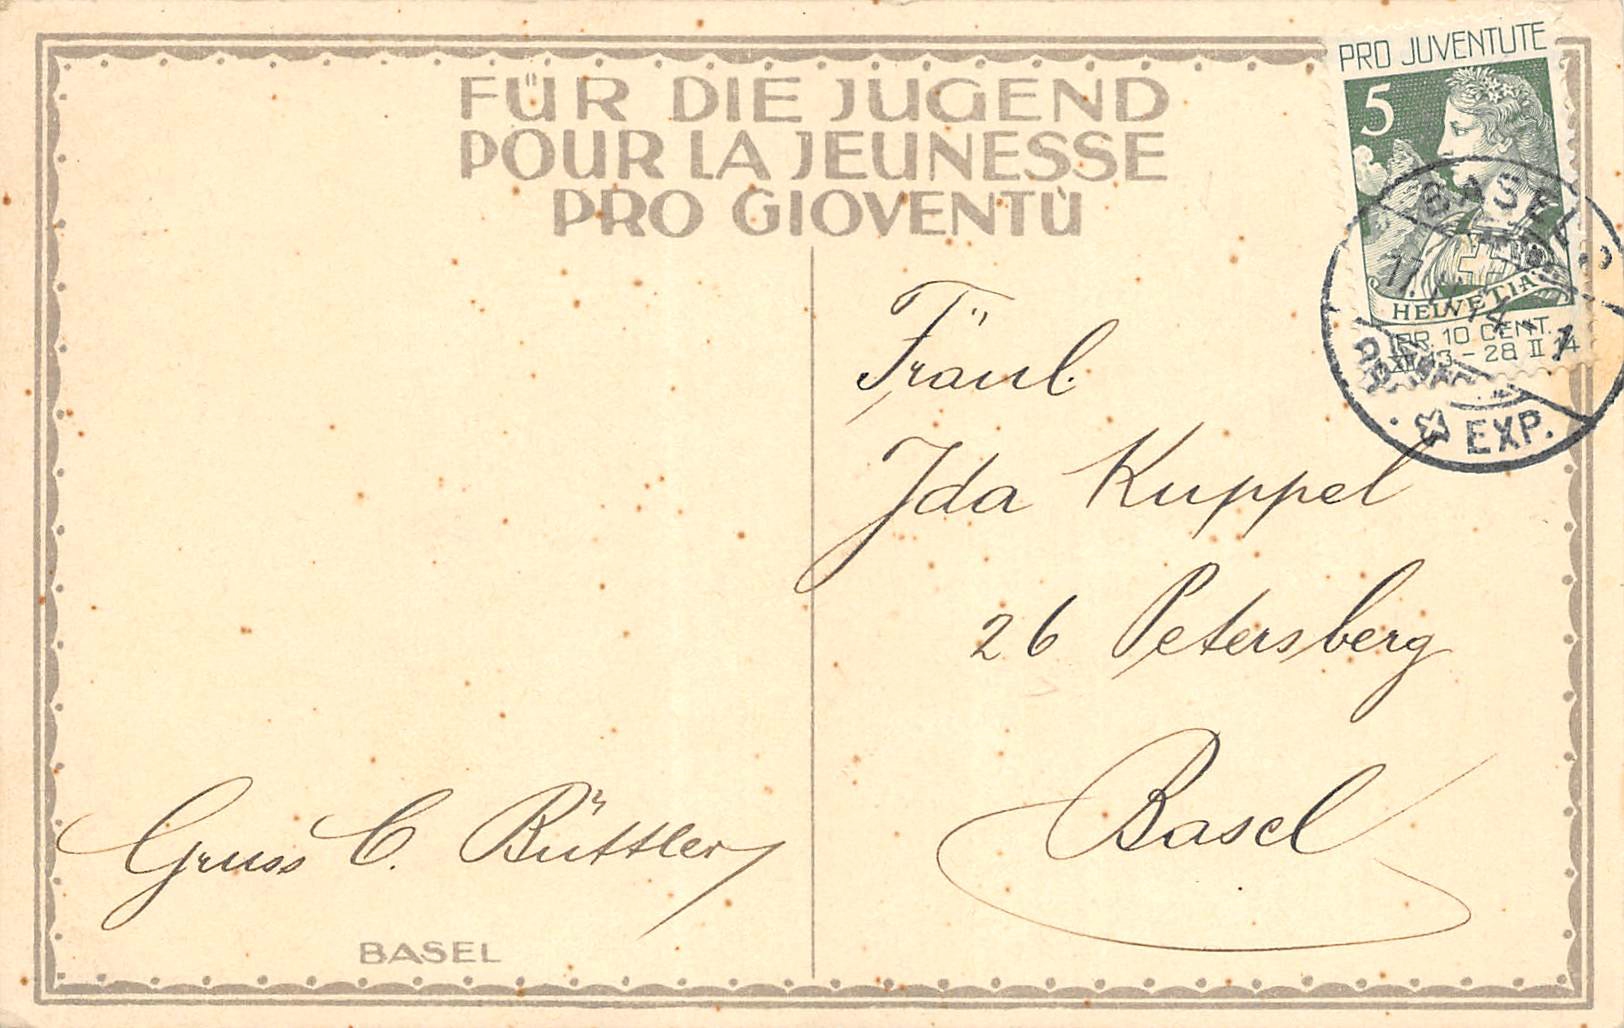 FÜR DIE JUGEND
POUR LA JEUNESSE
PRO GIOVENTÙ
PRO JUVENTUTE
5
HELVETIA
10 CENT.
28 II 14
BASEL
EXP.
Fräul.
Ida Kuppel
26 Petersberg
Basel
Gruss C. Büttler
BASEL